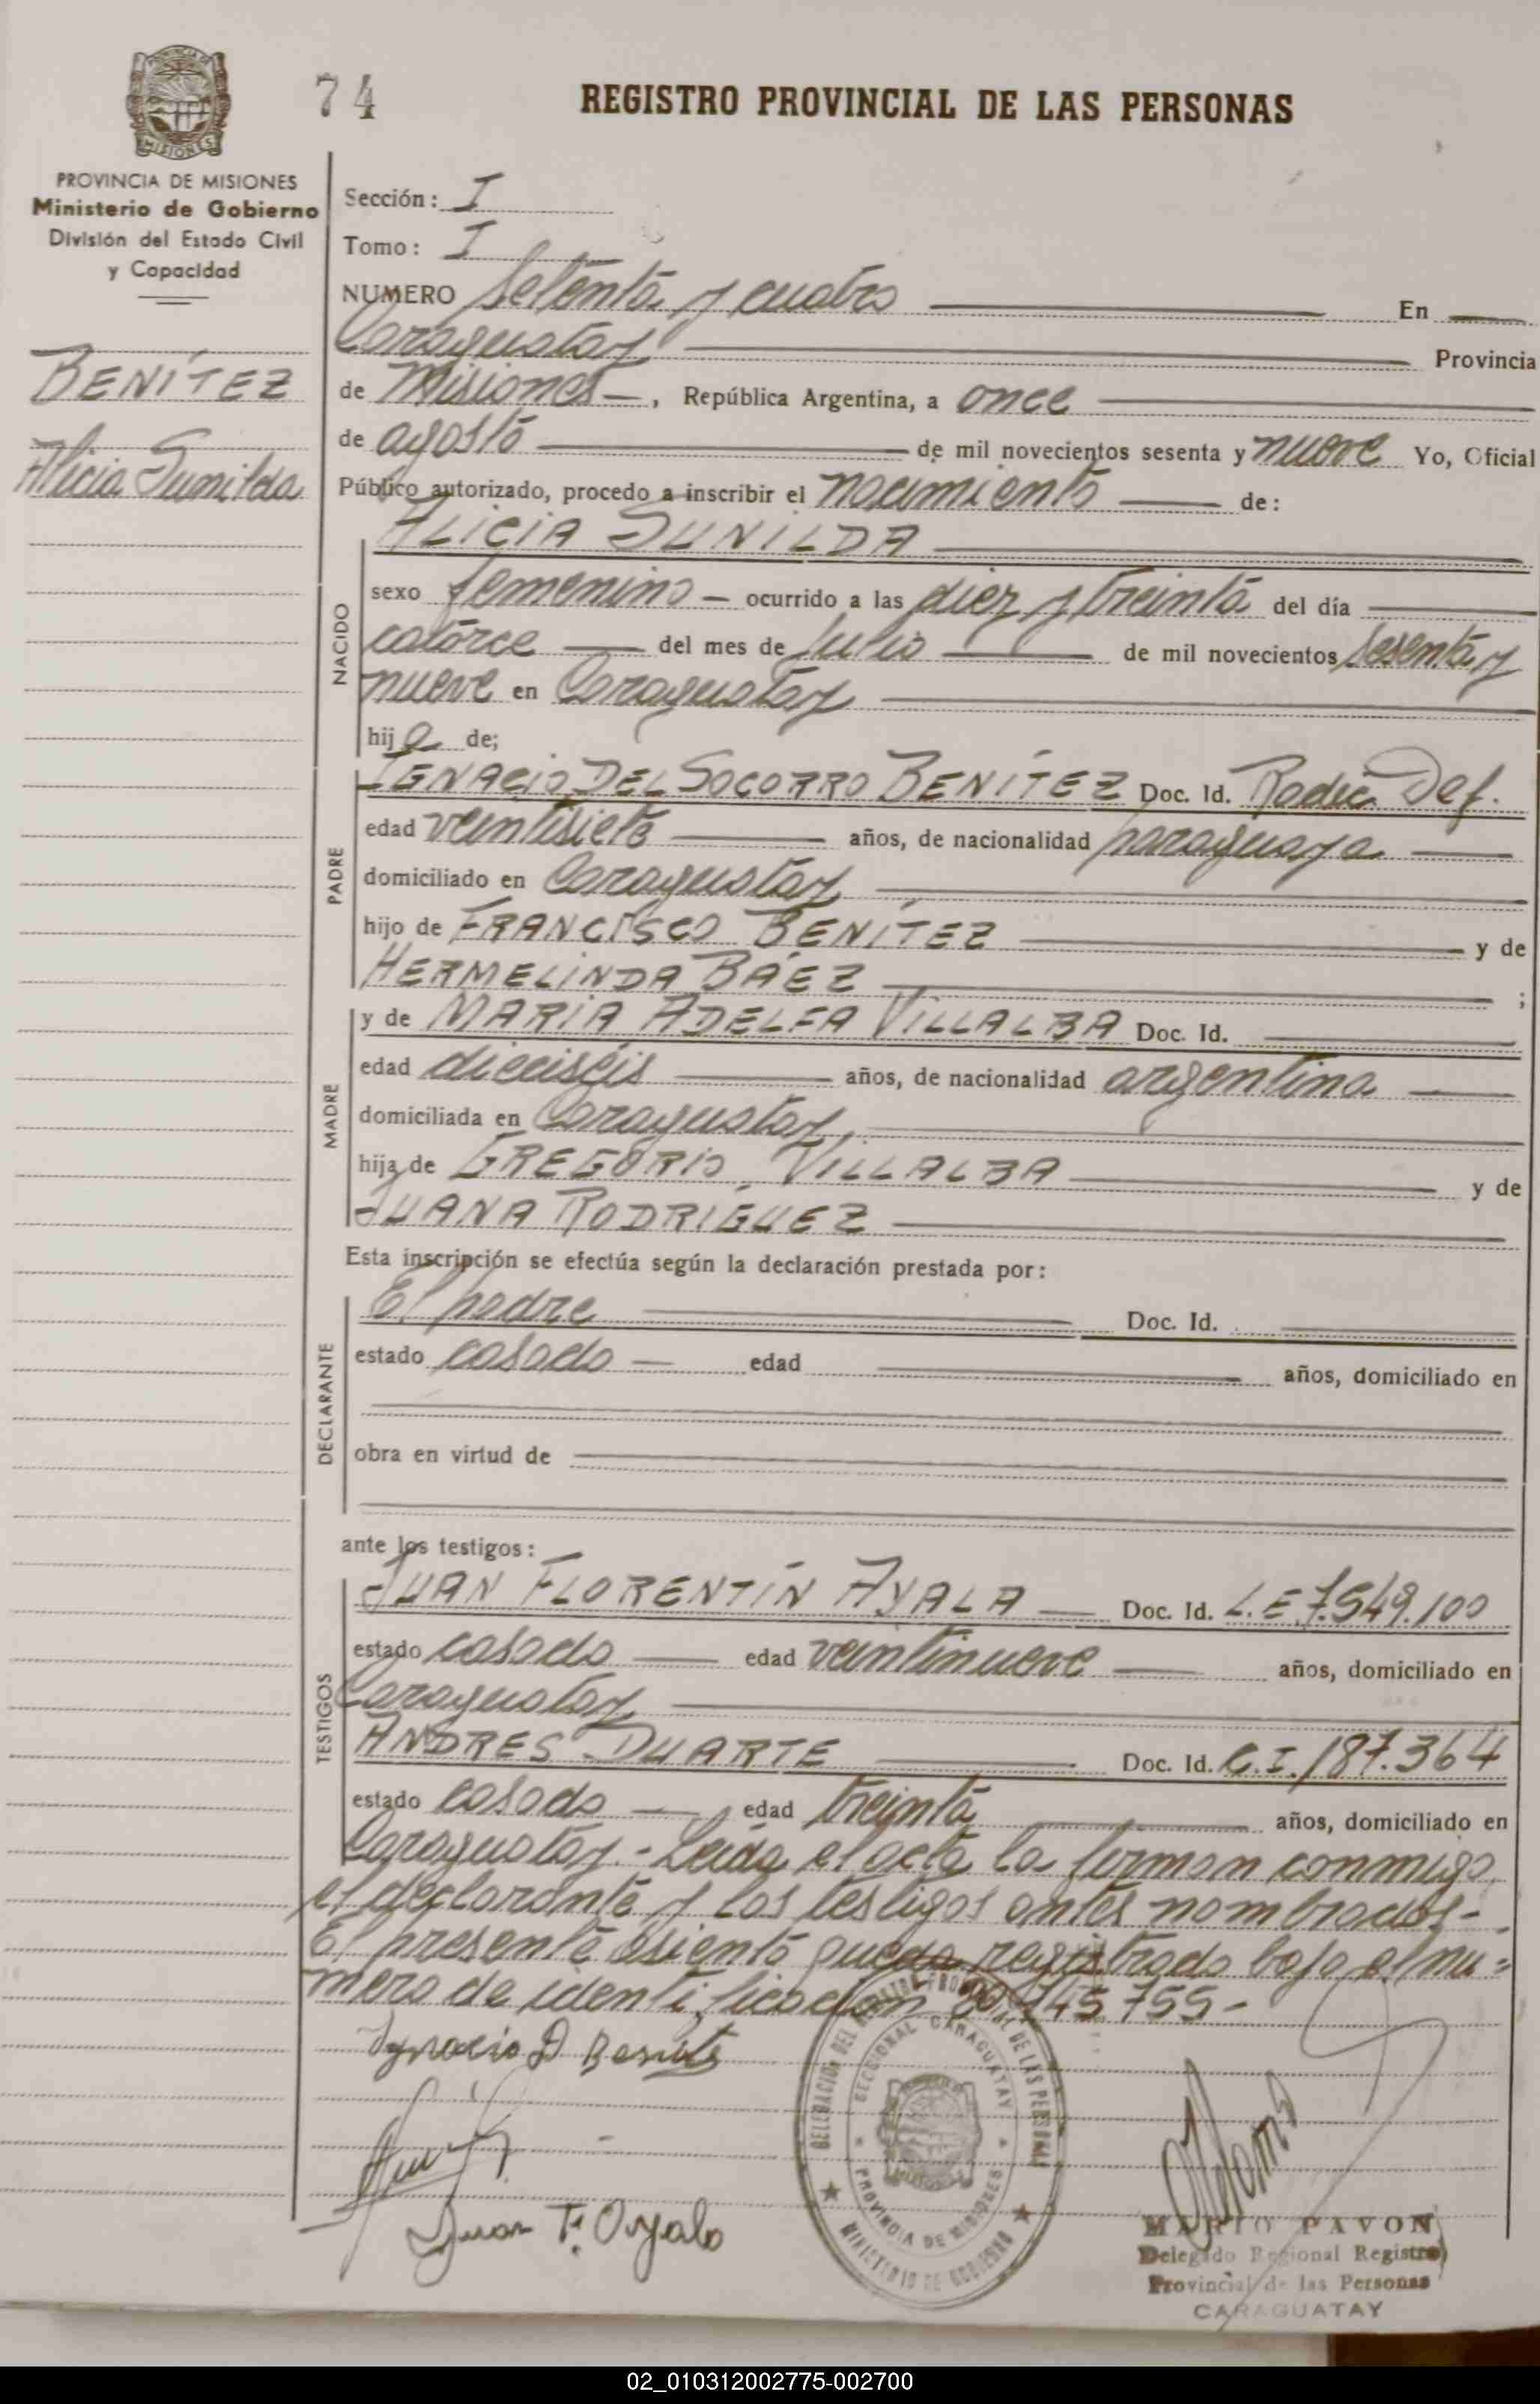 74
REGISTRO PROVINCIAL DE LAS PERSONAS
PROVINCIA DE MISIONES
Ministerio de Gobierno
División del Estado Civil
y Capacidad
BENÍTEZ
Alicia Sunilda
Sección: I
Tomo: I
NUMERO Setenta y cuatro En
Caraguatay Provincia
de Misiones, República Argentina, a once
de agosto de mil novecientos sesenta y nueve Yo, Oficial
Público autorizado, procedo a inscribir el nacimiento de:
ALICIA SUNILDA
NACIDO
sexo femenino ocurrido a las diez y treinta del día
catorce del mes de Julio de mil novecientos sesenta y
nueve en Caraguatay
hija de;
PADRE
IGNACIO DEL SOCORRO BENÍTEZ Doc. Id. Radic. Def.
edad veintisiete años, de nacionalidad paraguaya
domiciliado en Caraguatay
hijo de FRANCISCO BENÍTEZ y de
HERMELINDA BÁEZ ;
MADRE
y de MARÍA ADELFA VILLALBA Doc. Id.
edad dieciséis años, de nacionalidad argentina
domiciliada en Caraguatay
hija de GREGORIO VILLALBA y de
JUANA RODRÍGUEZ
Esta inscripción se efectúa según la declaración prestada por:
DECLARANTE
El padre Doc. Id.
estado casado edad años, domiciliado en
obra en virtud de
ante los testigos:
TESTIGOS
JUAN FLORENTÍN AYALA Doc. Id. L.E 7.549.100
estado casado edad veintinueve años, domiciliado en
Caraguatay
ANDRES DUARTE Doc. Id. C.I. 187.364
estado casado edad treinta años, domiciliado en
Caraguatay.- Leída el acta la firman conmigo
el declarante y los testigos antes nombrados-
El presente asiento queda registrado bajo el nú=
mero de identificación 745 755-
Ignacio D Benites
Juan F. Ayala
DELEGACION DEL REGISTRO PROVINCIAL DE LAS PERSONAS
SECCIONAL CARAGUATAY
PROVINCIA DE MISIONES
MINISTERIO DE GOBIERNO
MARIO PAVON
Delegado Regional Registro
Provincial de las Personas
CARAGUATAY
02_010312002775-002700